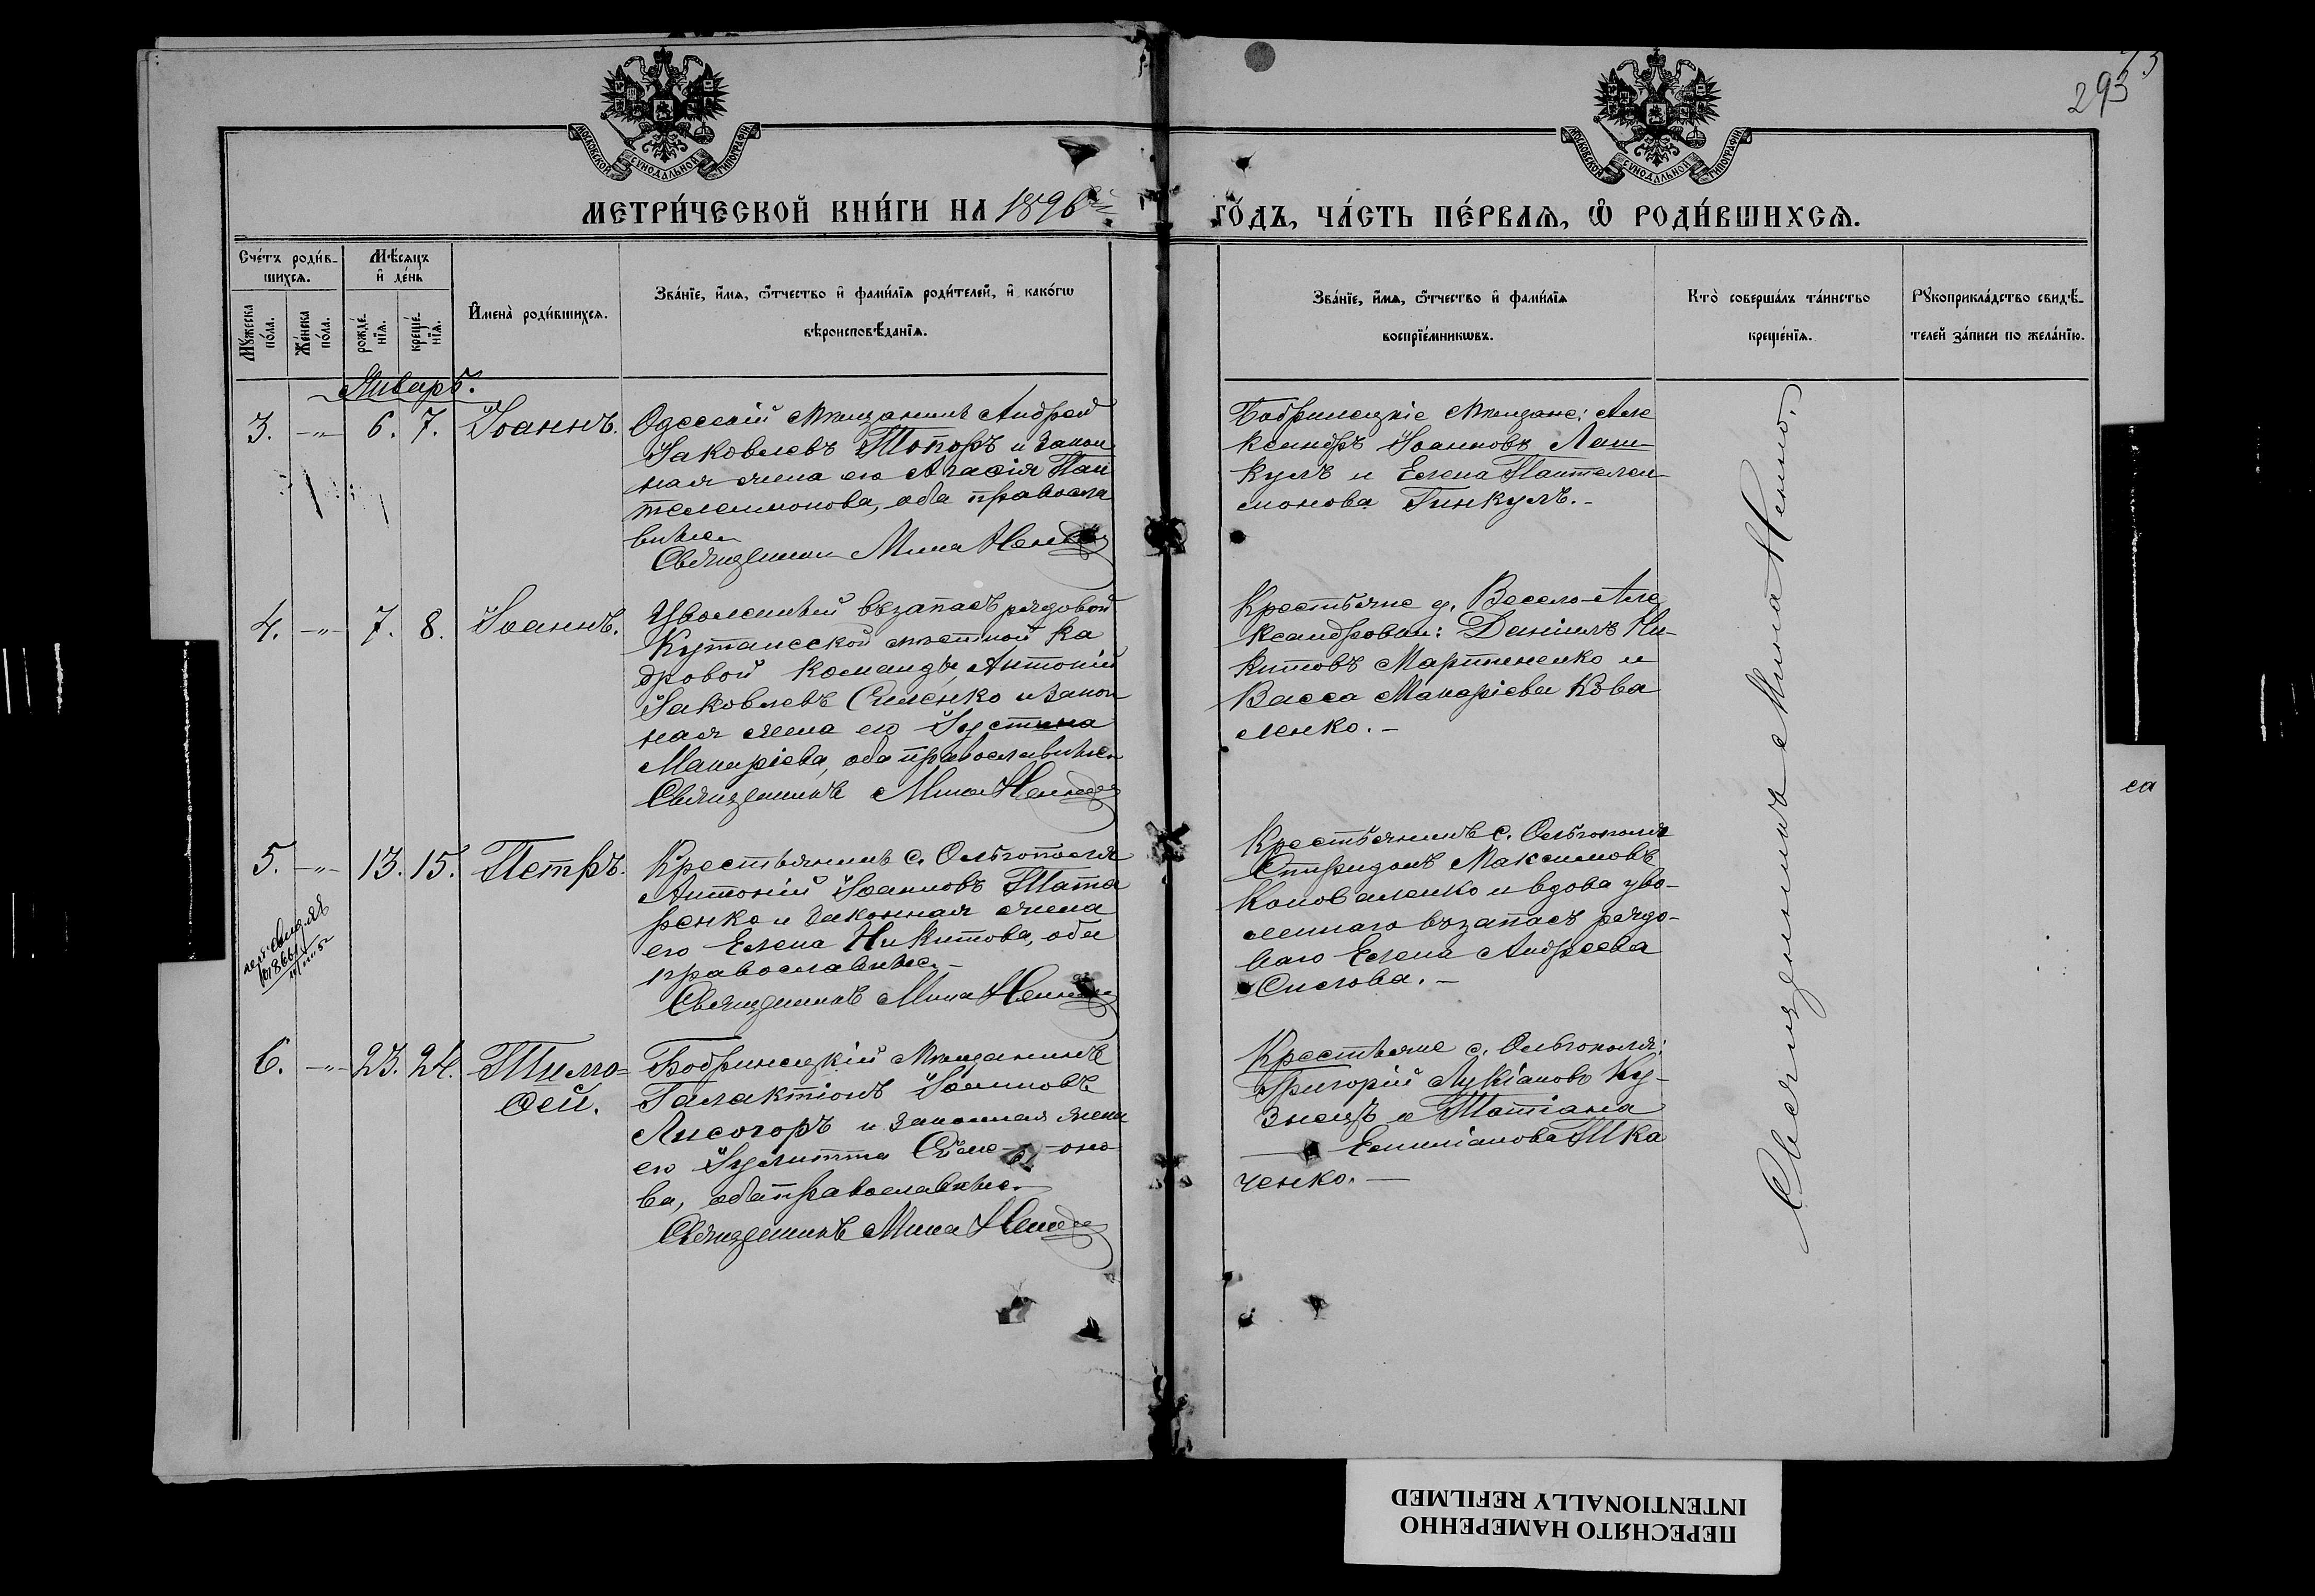 293
МОСКОВСКОЙ СѴНОДАЛЬНОЙ ТИПОГРАФІИ
МОСКОВСКОЙ СѴНОДАЛЬНОЙ ТИПОГРАФІИ
МЕТРИ́ЧЕСКОЙ КНИ́ГИ НА 1896 й
ГО́ДЪ, ЧА́СТЬ ПЕ́РВАѦ, Ѡ РОДИ́ВШИХСѦ.
Сче́тъ роди́в-
шихсѧ.
Мѣ́сѧцъ
и҆ де́нь
Мꙋ́жеска
по́ла.
Же́нска
по́ла.
рожде́-
нїѧ.
креще́-
нїѧ.
И҆мена̀ роди́вшихсѧ.
Зва́нїе, и҆́мѧ, ѻ҆́тчество и҆ фами́лїѧ роди́телей, и҆ како́гѡ
вѣроисповѣ́данїѧ.
Зва́нїе, и҆́мѧ, ѻ҆́тчество и҆ фами́лїѧ
воспрїе́мникѡвъ.
Кто̀ соверша́лъ та́инство
креще́нїѧ.
Рꙋкоприкла́дство свидѣ́-
телей за́писи по жела́нїю.
Январь.
3. -„- 6. 7. Іоаннъ.
Одесскій мѣщанинъ Андрей
Іаковлевъ Топоръ и закон
ная жена его Агафія Пан
телеимонова, оба правосла
вные
Священникъ Мина
Бобринецкіе мѣщане: Але
ксандръ Іоанновъ
кулъ и Елена Пантелеи-
монова Гинкулъ.-
4. -„- 7. 8. Іоаннъ.
Уволенный въ запасъ рядовой
Кутаисской мѣстной ка
дровой команды, Антоній
Іаковлевъ Еменко и закон
ная жена его Іустина
Макаріева, оба православные
Священникъ Мина
Крестьяне д. Весело-Але
ксандровки: Даніилъ Ни-
китовъ Мартиненко и
Васса Макаріева Кова
ленко.-
5. -„- 13. 15. Петръ.
Крестьянинъ с. Ольгополя
Антоній Іоанновъ Тата
ренко и законная жена
его Елена Никитова, оба
православные.-
Священникъ Мина
Крестьянинъ с. Ольгополя
Спиридонъ Максимовъ
Коноваленко и вдова уво-
леннаго въ запасъ рядо-
ваго Елена Андреева
Сислова.-
6. -„- 23. 24. Тимо=
ѳей.
Бобринецкій мѣщанинъ
Галактіонъ Іоанновъ
Лисогоръ и законная жена
его Іулитта
ва, оба православные.-
Священникъ Мина
Крестьяне с. Ольгополя:
Григорій Лукіановъ Ку-
знецъ и Татіана
Емиліанова Тка
ченко.-
Священникъ Мина
са
ПЕРЕСНЯТО НАМЕРЕННО
INTENTIONALLY REFILMED